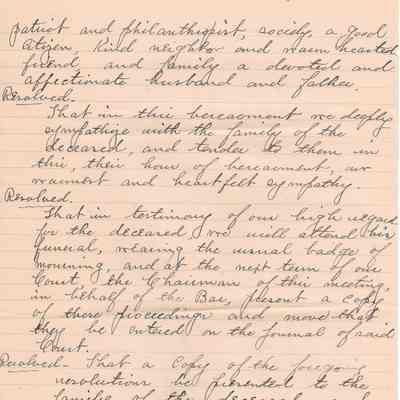 patriot and philanthropist, society, a good
citizen, kind neighbor and warm hearted
friend, and family a devoted and
affectionate husband and father.
Resolved.-
That in this bereavment we deeply
sympathize with the family of the
deceased, and tender to them in
this, their hour of bereavment, our
warmest and heartfelt sympathy.
Resolved.
That in testimony of our high regard
for the deceased, we will attend his
funeral, wearing the usual badge of
mourning, and at the next term of our
Court, the Chairman of this meeting,
in behalf of the Bar, present a copy
of these proceedings and move that
they be entered on the journal of said
Court.
Resolved- That a copy of the foregoing
resolutions be presented to the
family of the deceased and